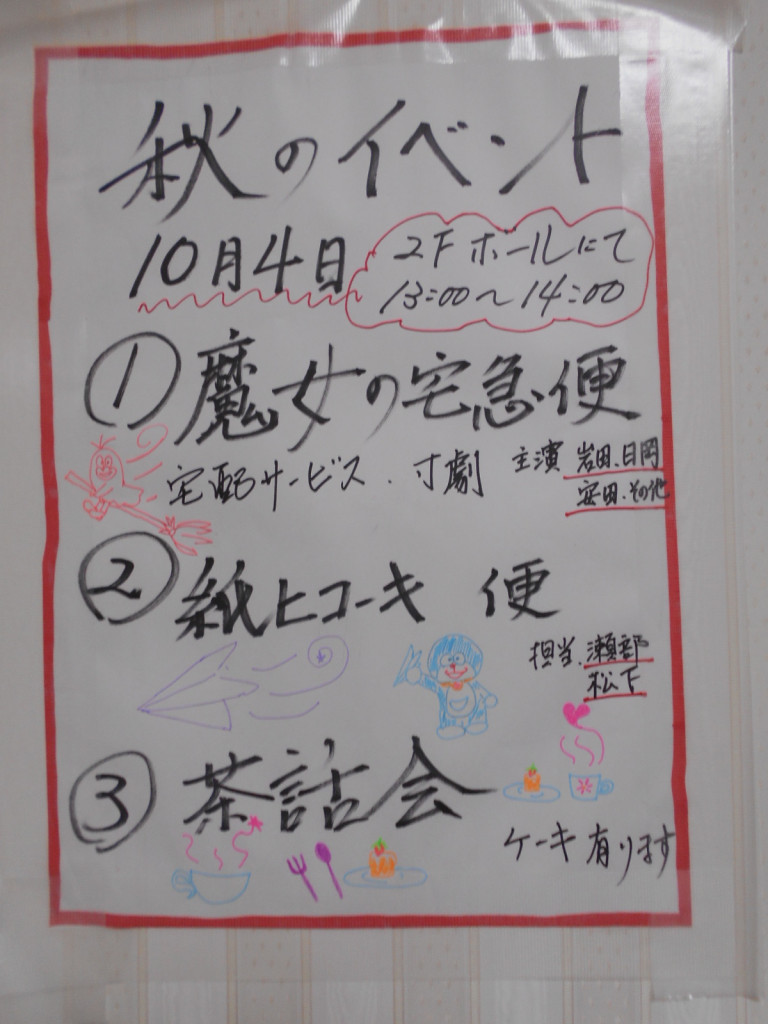 秋のイベント
10月4日
2Fホールにて
13:00〜14:00
① 魔女の宅急便
宅配サービス、寸劇
主演 岩田、日岡
安田、その他
② 紙ヒコーキ 便
担当 瀬部
松下
③ 茶話会
ケーキ有ります